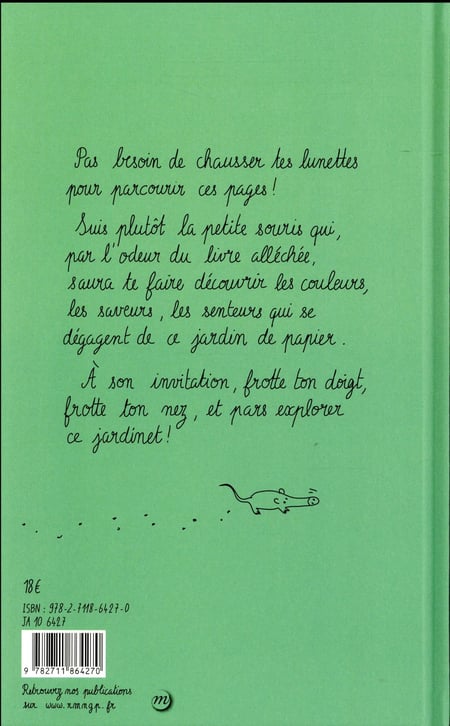 Pas besoin de chausser tes lunettes
pour parcourir ces pages !
Suis plutôt la petite souris qui,
par l'odeur du livre alléchée,
saura te faire découvrir les couleurs,
les saveurs, les senteurs qui se
dégagent de ce jardin de papier.
À son invitation, frotte ton doigt,
frotte ton nez, et pars explorer
ce jardinet !
18€
ISBN : 978-2-7118-6427-0
JA 10 6427
9 782711 864270
Retrouvez nos publications
sur www.rmngp.fr
m